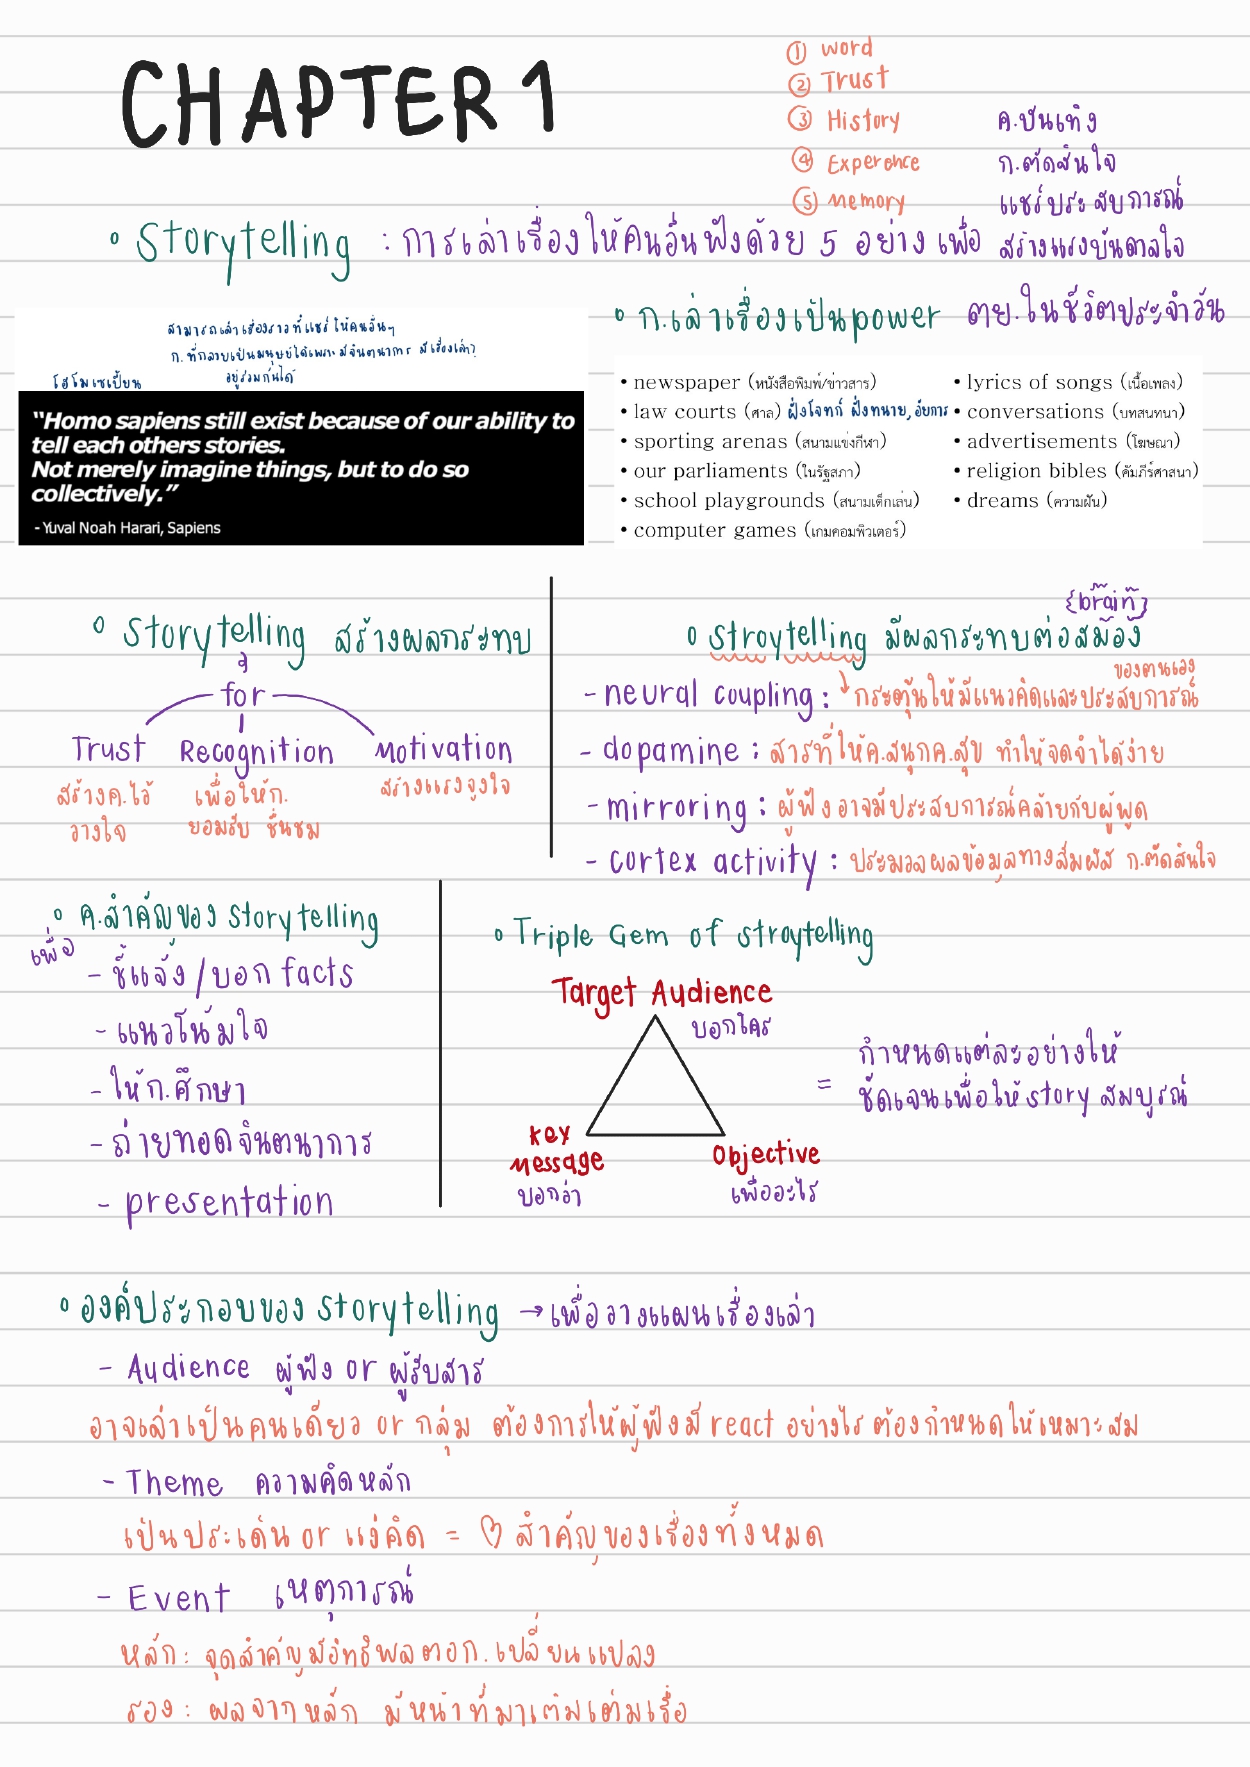 CHAPTER 1
① word
② Trust
③ History
④ Experence
⑤ Memory
ค.บันเทิง
ก.ตัดสินใจ
แชร์ประสบการณ์
สร้างแรงบันดาลใจ
Storytelling : การเล่าเรื่องให้คนอื่นฟังด้วย 5 อย่าง เพื่อ
สามารถเล่าเรื่องราวที่แชร์ให้คนอื่นๆ
ก.ที่กลายเป็นมนุษย์ได้เพราะมีจินตนาการ มีเรื่องเล่า
อยู่ร่วมกันได้
โฮโมเซเปี้ยน
“Homo sapiens still exist because of our ability to
tell each others stories.
Not merely imagine things, but to do so
collectively.”
- Yuval Noah Harari, Sapiens
ก.เล่าเรื่องเป็น power ตย.ในชีวิตประจำวัน
• newspaper (หนังสือพิมพ์/ข่าวสาร)
• law courts (ศาล) ฝั่งโจทก์ ฝั่งทนาย, อัยการ
• sporting arenas (สนามแข่งกีฬา)
• our parliaments (ในรัฐสภา)
• school playgrounds (สนามเด็กเล่น)
• computer games (เกมคอมพิวเตอร์)
• lyrics of songs (เนื้อเพลง)
• conversations (บทสนทนา)
• advertisements (โฆษณา)
• religion bibles (คัมภีร์ศาสนา)
• dreams (ความฝัน)
Storytelling สร้างผลกระทบ
for
Trust Recognition Motivation
สร้างค.ไว้
วางใจ
เพื่อให้ก.
ยอมรับ ชื่นชม
สร้างแรงจูงใจ
{brain}
Stroytelling มีผลกระทบต่อสมอง
ของตนเอง
- neural coupling : กระตุ้นให้มีแนวคิดและประสบการณ์
- dopamine : สารที่ให้ค.สนุกค.สุข ทำให้จดจำได้ง่าย
- mirroring : ผู้ฟังอาจมีประสบการณ์คล้ายกับผู้พูด
- cortex activity : ประมวลผลข้อมูลทางสัมผัส ก.ตัดสินใจ
ค.สำคัญของ storytelling
เพื่อ
- ชี้แจ้ง / บอก facts
- แนวโน้มใจ
- ให้ก.ศึกษา
- ถ่ายทอดจินตนาการ
- presentation
Triple Gem of stroytelling
Target Audience
บอกใคร
key
message
บอกว่า
Objective
เพื่ออะไร
= กำหนดแต่ละอย่างให้
ชัดเจนเพื่อให้ story สมบูรณ์
องค์ประกอบของ storytelling → เพื่อวางแผนเรื่องเล่า
- Audience ผู้ฟัง or ผู้รับสาร
อาจเล่าเป็นคนเดียว or กลุ่ม ต้องการให้ผู้ฟังมี react อย่างไร ต้องกำหนดให้เหมาะสม
- Theme ความคิดหลัก
เป็นประเด็น or แง่คิด = ♡ สำคัญของเรื่องทั้งหมด
- Event เหตุการณ์
หลัก : จุดสำคัญมีอิทธิพลตอก.เปลี่ยนแปลง
รอง : ผลจากหลัก มีหน้าที่มาเติมเต็มเรื่อ